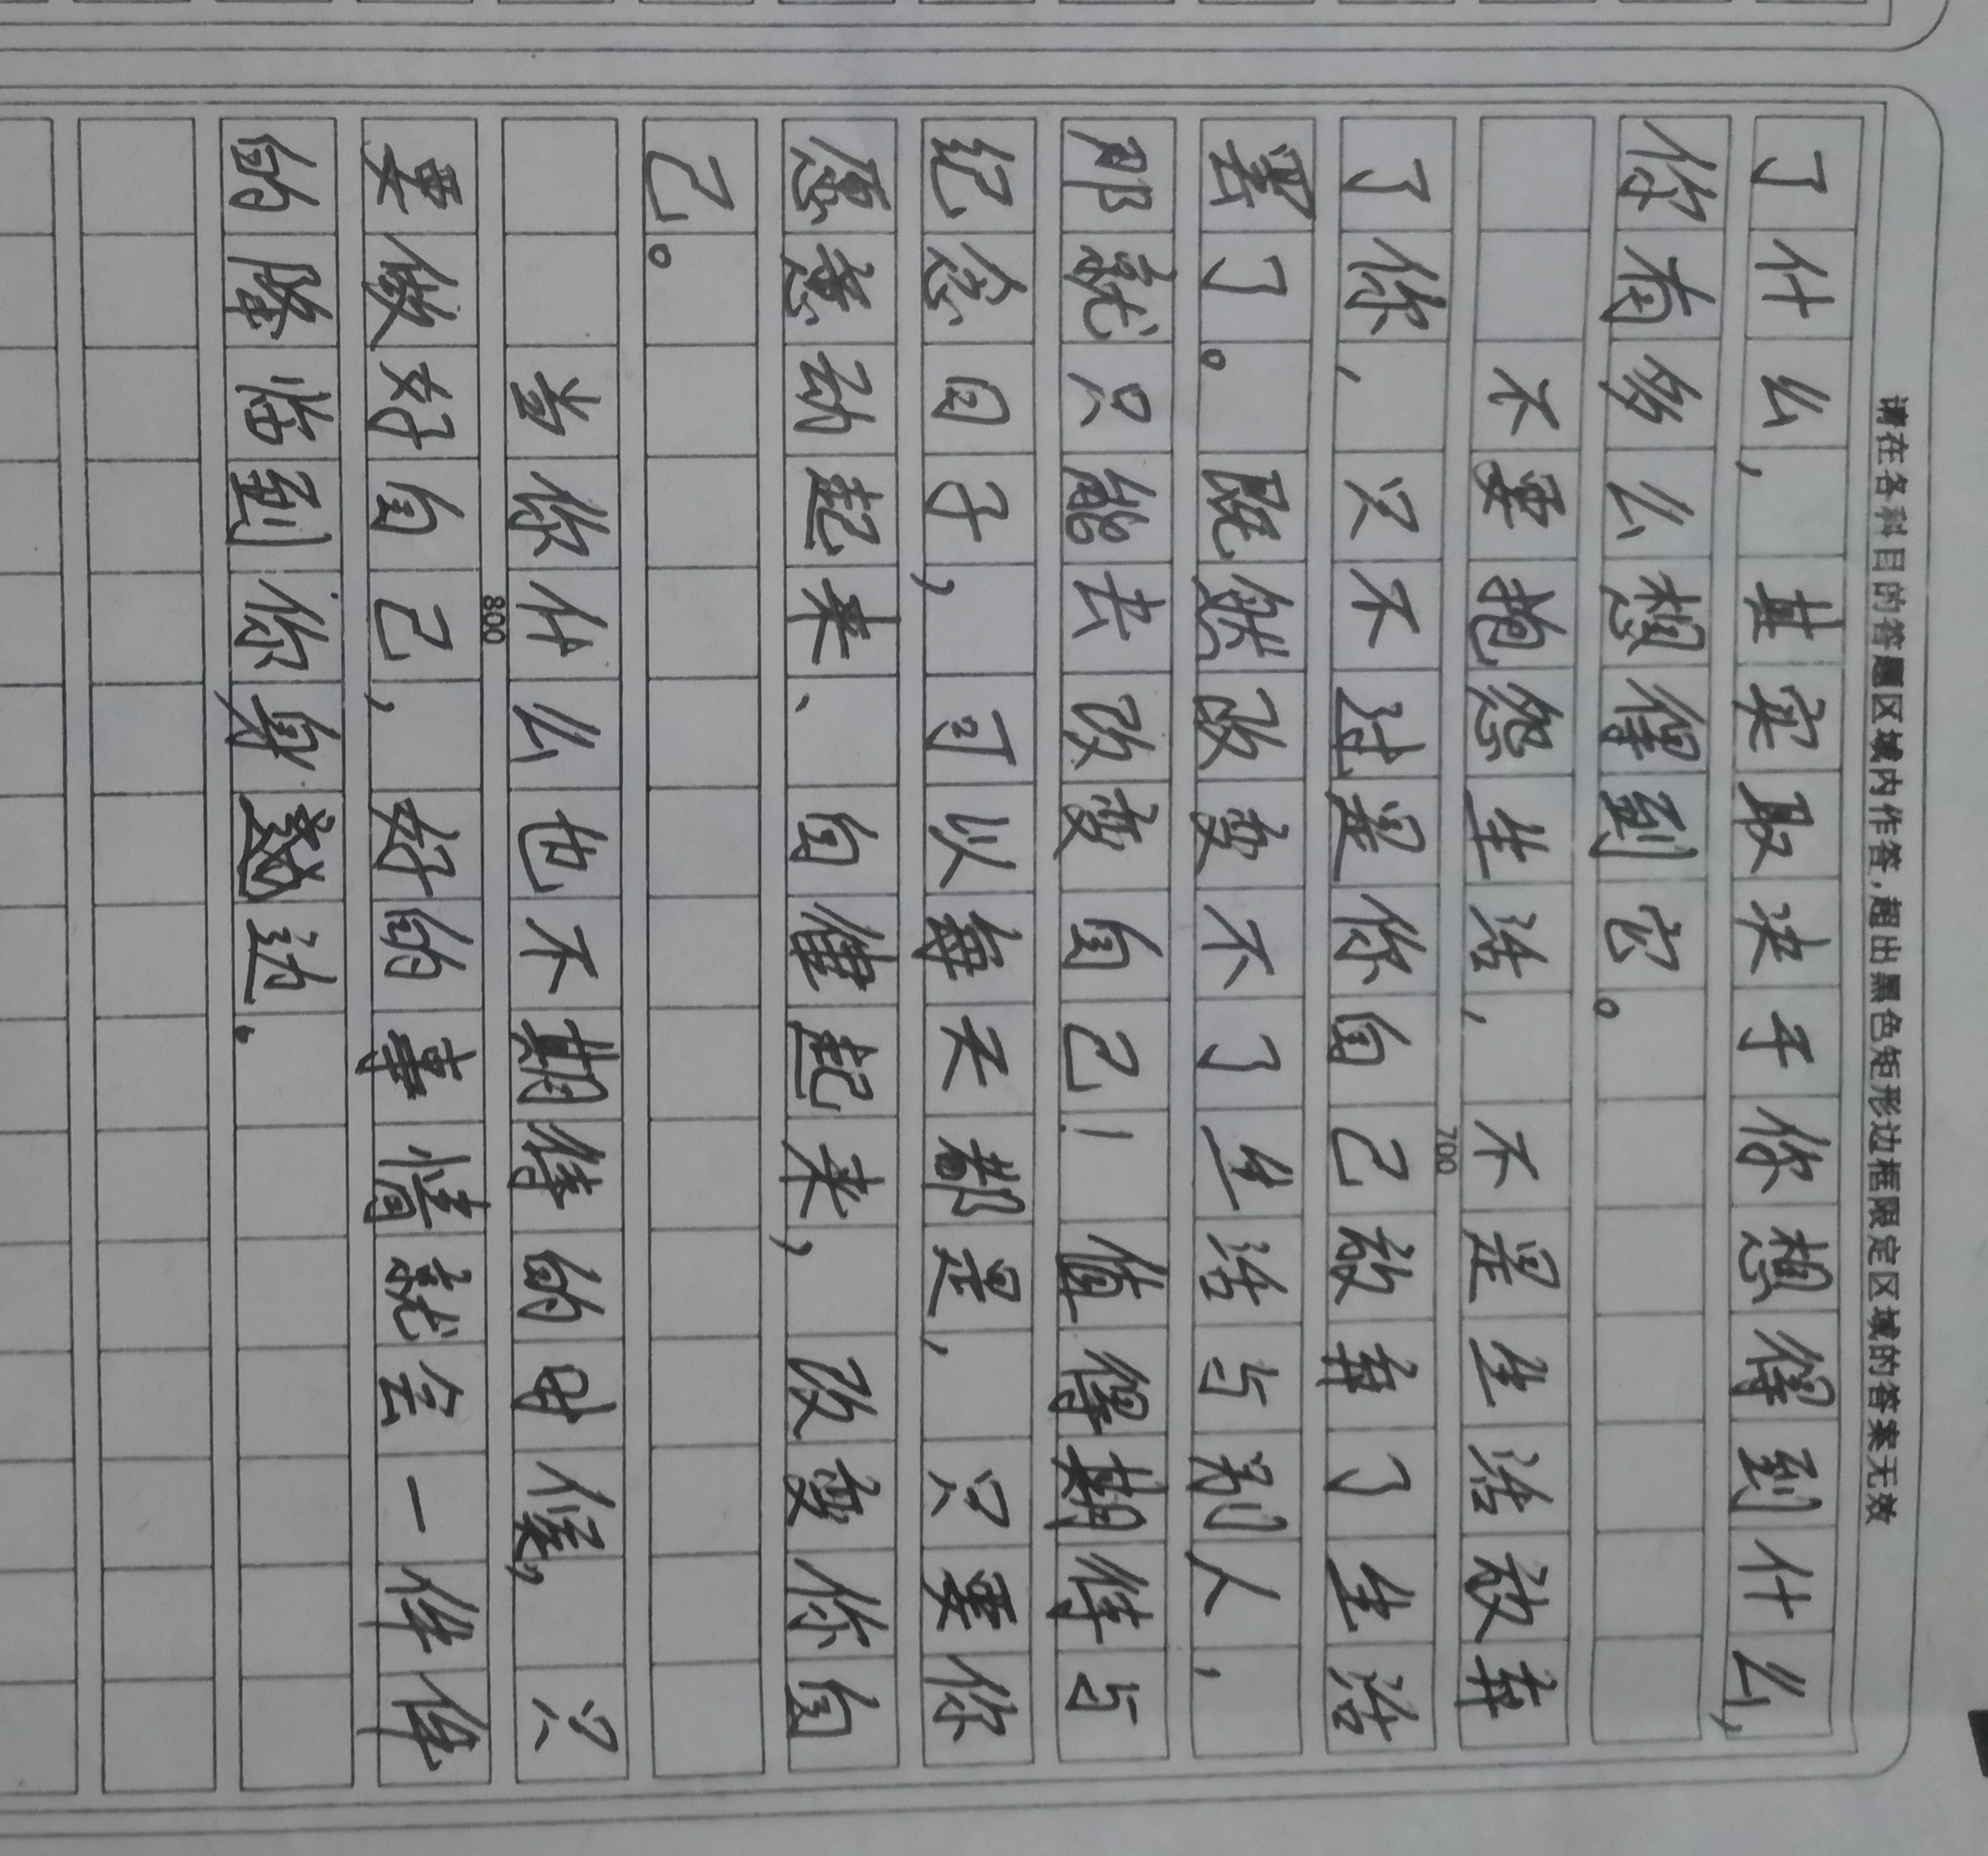 请在各科目的答题区域内作答,超出黑色矩形边框限定区域的答案无效
了什么,其实取决于你想得到什么,
你有多么想得到它。
不要抱怨生活,不是生活放弃
700
了你,只不过是你自己放弃了生活
罢了。既然改变不了生活与别人,
那就只能去改变自己!值得期待与
纪念日子,可以每天都是,只要你
愿意动起来、自催起来,改变你自
己。
当你什么也不期待的时候,只
800
要做好自己,好的事情就会一件件
的降临到你身边.